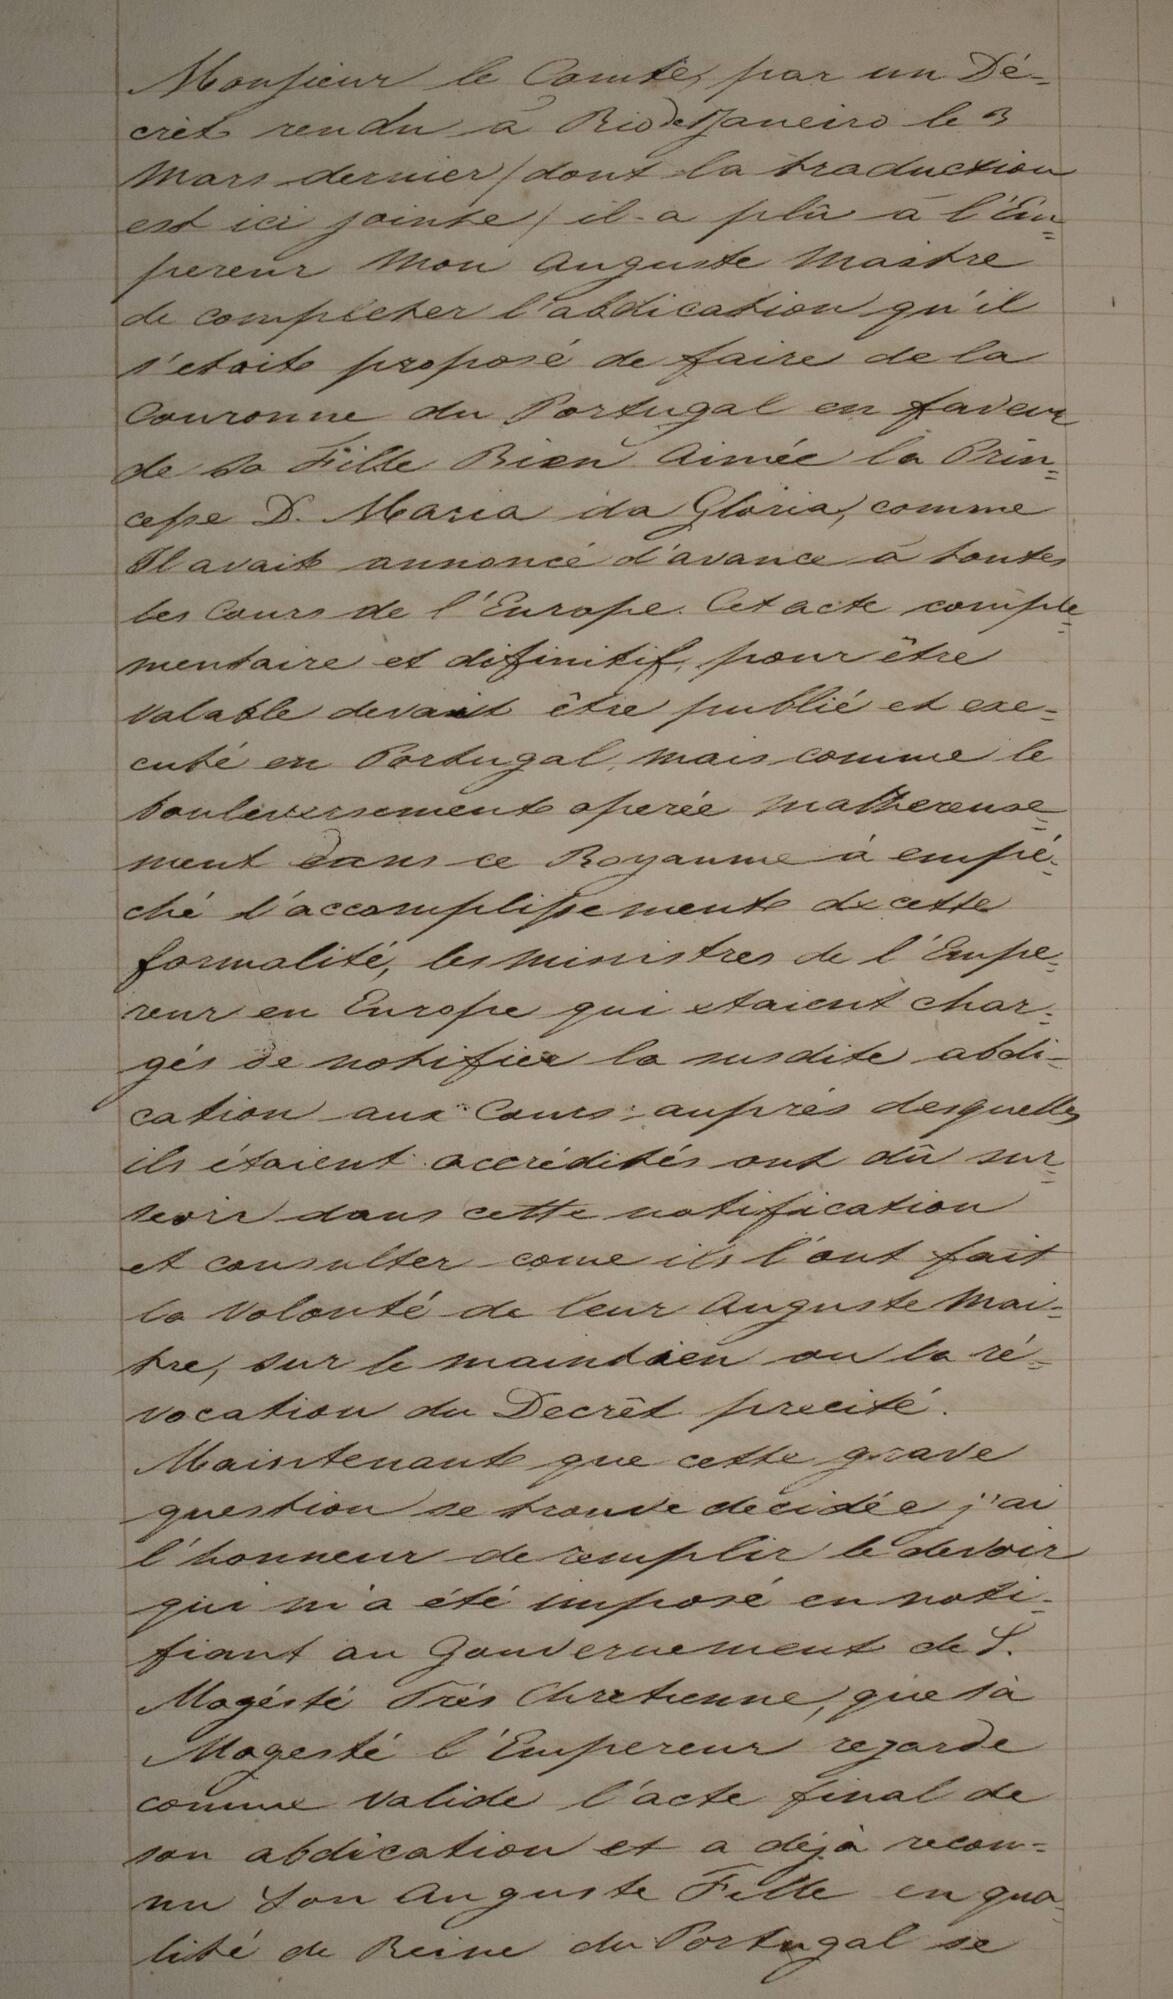 Monsieur le Comte, par un Dé-
crèt rendu à Rio de Janeiro le 3
Mars dernier / dont la traduction
est ici jointe / il a plû à l'Em=
pereur Mon Auguste Maitre
de completer l'abdication qu'il
s'etait proposé de faire de la
Couronne du Portugal en faveur
de sa Fille Bien Aimée la Prin=
cesse D. Maria da Gloria, comme
Il avait annoncé d'avance à toutes
les Cours de l'Europe. Cet acte comple=
mentaire et difinitif, pour être
valable devait être publié et exe=
cuté en Portugal, mais comme le
bouleversement operée malhereuse=
ment dans ce Royaume à empé=
ché l'accomplissement de cette
formalité, les ministres de l'Empe=
reur en Europe qui etaient char=
gés de notifier la susdite abdi=
cation aux Cours auprès desquelles
ils étaient accrédités ont dû sur=
seoir dans cette notification
et consulter come ils l'ont fait
la Volonté de leur Auguste Mai=
tre, sur le maintien ou la ré=
vocation du Decrêt precité.
Maintenant que cette grave
question se trouve decidée j'ai
l'honneur de remplir le devoir
qui m'a été imposé en noti=
fiant au Gouvernement de S.
Magésté Trés Chretienne, que sà
Magesté l'Empereur regarde
comme valide l'acte final de
son abdication et a déjà recon=
nu Son Auguste Fille en qua=
lité de Reine du Portugal se